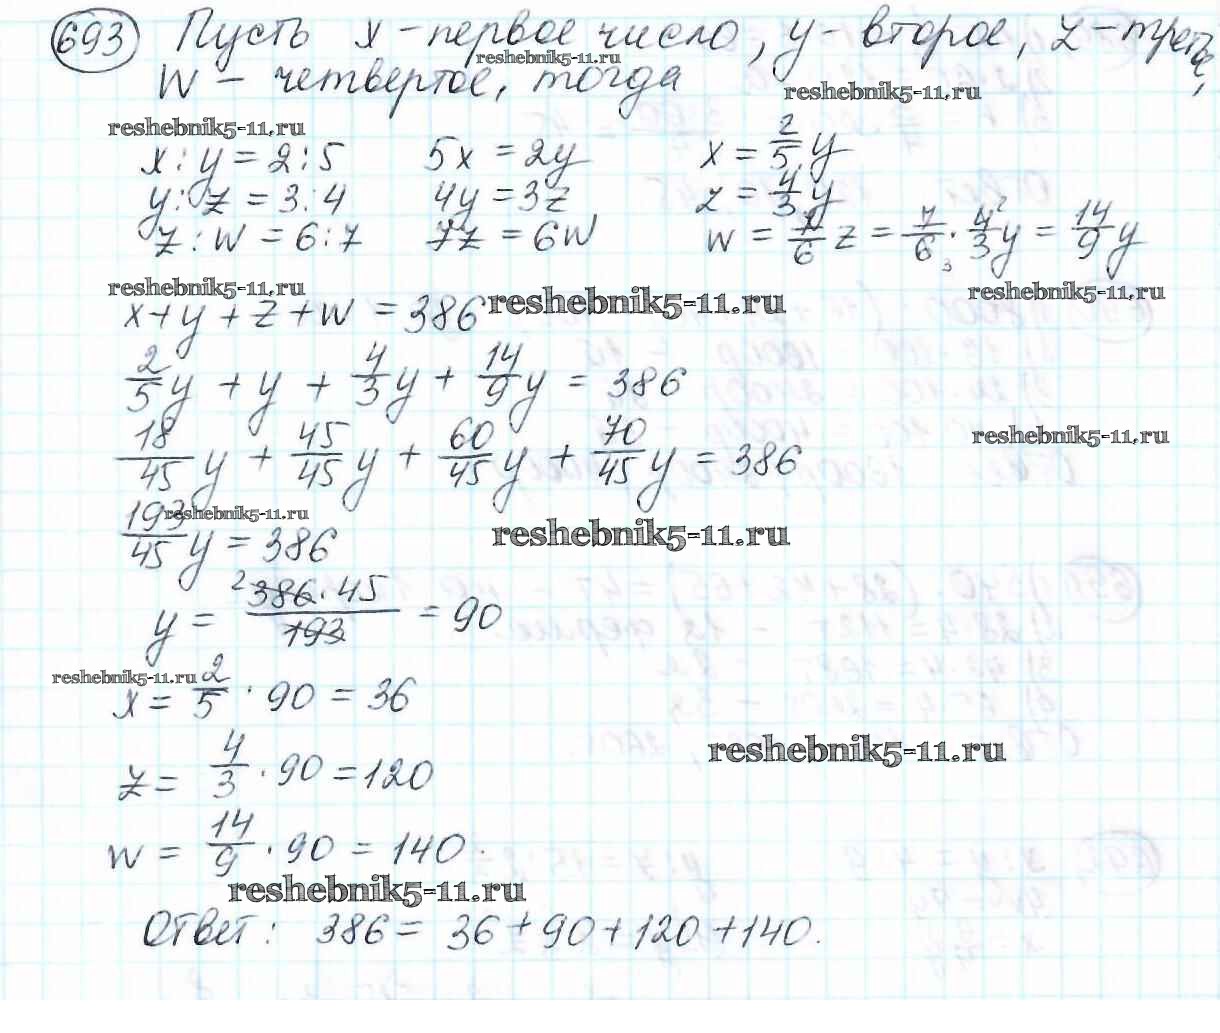 693 Пусть x - первое число, y - второе, z - третье,
reshebnik5-11.ru
w - четвертое, тогда
reshebnik5-11.ru
reshebnik5-11.ru
x : y = 2 : 5 5x = 2y x = 2/5 y
y : z = 3 : 4 4y = 3z z = 4/3 y
z : w = 6 : 7 7z = 6w w = 7/6 z = 7/6 3 · 4 2/3 y = 14/9 y
reshebnik5-11.ru reshebnik5-11.ru reshebnik5-11.ru
x + y + z + w = 386
2/5 y + y + 4/3 y + 14/9 y = 386
reshebnik5-11.ru
18/45 y + 45/45 y + 60/45 y + 70/45 y = 386
reshebnik5-11.ru reshebnik5-11.ru
193/45 y = 386
y = 2 386 · 45 / 193 = 90
reshebnik5-11.ru
x = 2/5 · 90 = 36
reshebnik5-11.ru
z = 4/3 · 90 = 120
w = 14/9 · 90 = 140.
reshebnik5-11.ru
Ответ: 386 = 36 + 90 + 120 + 140.